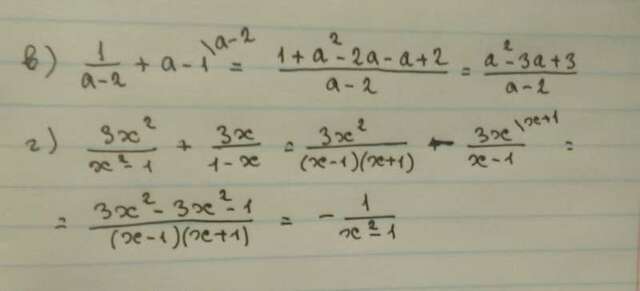 в) 1/(a-2) + a-1\a-2 = (1+a²-2a-a+2)/(a-2) = (a²-3a+3)/(a-2)
г) 3x²/(x²-1) + 3x/(1-x) = 3x²/((x-1)(x+1)) - 3x\x+1/(x-1) =
= (3x²-3x²-1)/((x-1)(x+1)) = - 1/(x²-1)